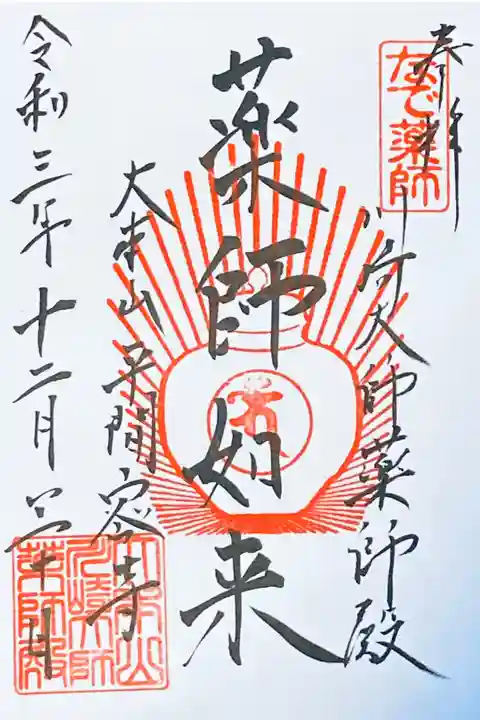 奉拝
なで薬師
川崎大師薬師殿
薬師如来
大本山平間寺
令和三年十二月三十日
大本山
川崎大師
薬師殿